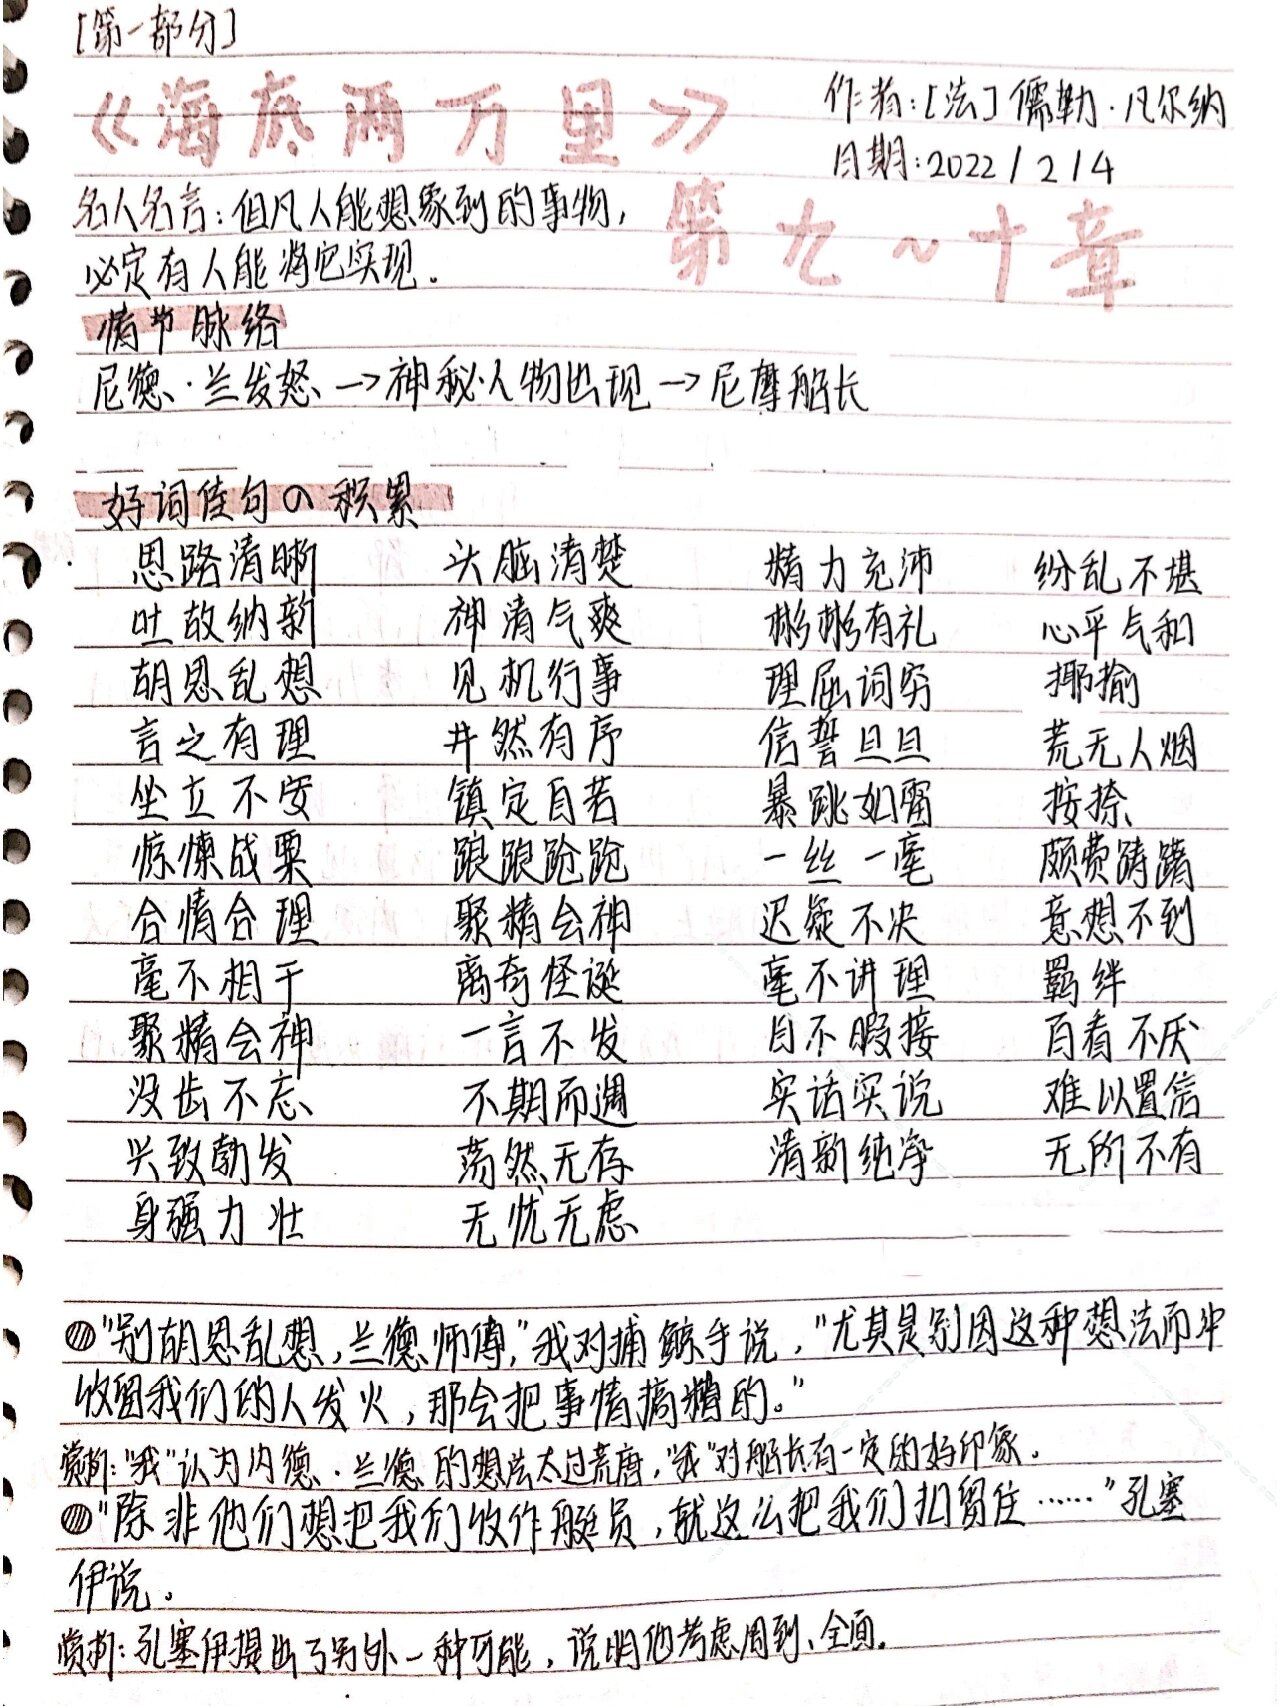 [第一部分]
《海底两万里》
作者:[法]儒勒·凡尔纳
日期:2022/2/4
第九~十章
名人名言:但凡人能想象到的事物,
必定有人能将它实现。
情节脉络
尼德·兰发怒→神秘人物出现→尼摩船长
好词佳句の积累
思路清晰 头脑清楚 精力充沛 纷乱不堪
吐故纳新 神清气爽 彬彬有礼 心平气和
胡思乱想 见机行事 理屈词穷 揶揄
言之有理 井然有序 信誓旦旦 荒无人烟
坐立不安 镇定自若 暴跳如雷 按捺
惊悚战栗 踉踉跄跄 一丝一毫 颇费踌躇
合情合理 聚精会神 迟疑不决 意想不到
毫不相干 离奇怪诞 毫不讲理 羁绊
聚精会神 一言不发 目不暇接 百看不厌
没齿不忘 不期而遇 实话实说 难以置信
兴致勃发 荡然无存 清新纯净 无所不有
身强力壮 无忧无虑
"别胡思乱想,兰德师傅,"我对捕鲸手说,"尤其是别因这种想法而冲
收留我们的人发火,那会把事情搞糟的。"
赏析:"我"认为内德·兰德的想法太过荒唐,"我"对船长有一定的好印象。
"除非他们想把我们收作艇员,就这么把我们扣留住……"孔塞
伊说。
赏析:孔塞伊提出了另外一种可能,说明他考虑周到、全面。